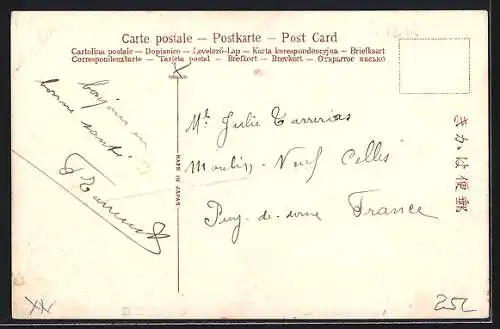 Carte postale – Postkarte – Post Card
Cartolina postale – Dopisnice – Levelező-Lap – Karta korespondencyjna – Briefkaart
Correspondenzkarte – Tarjeta postal – Brefkort – Brevkort – Открытое письмо
bonjour en
bonne santé
Mlle Julie Tarrerias
Moulin-Neuf Celles
Puy-de-dome France
MADE IN JAPAN
きかは便郵
XX
252